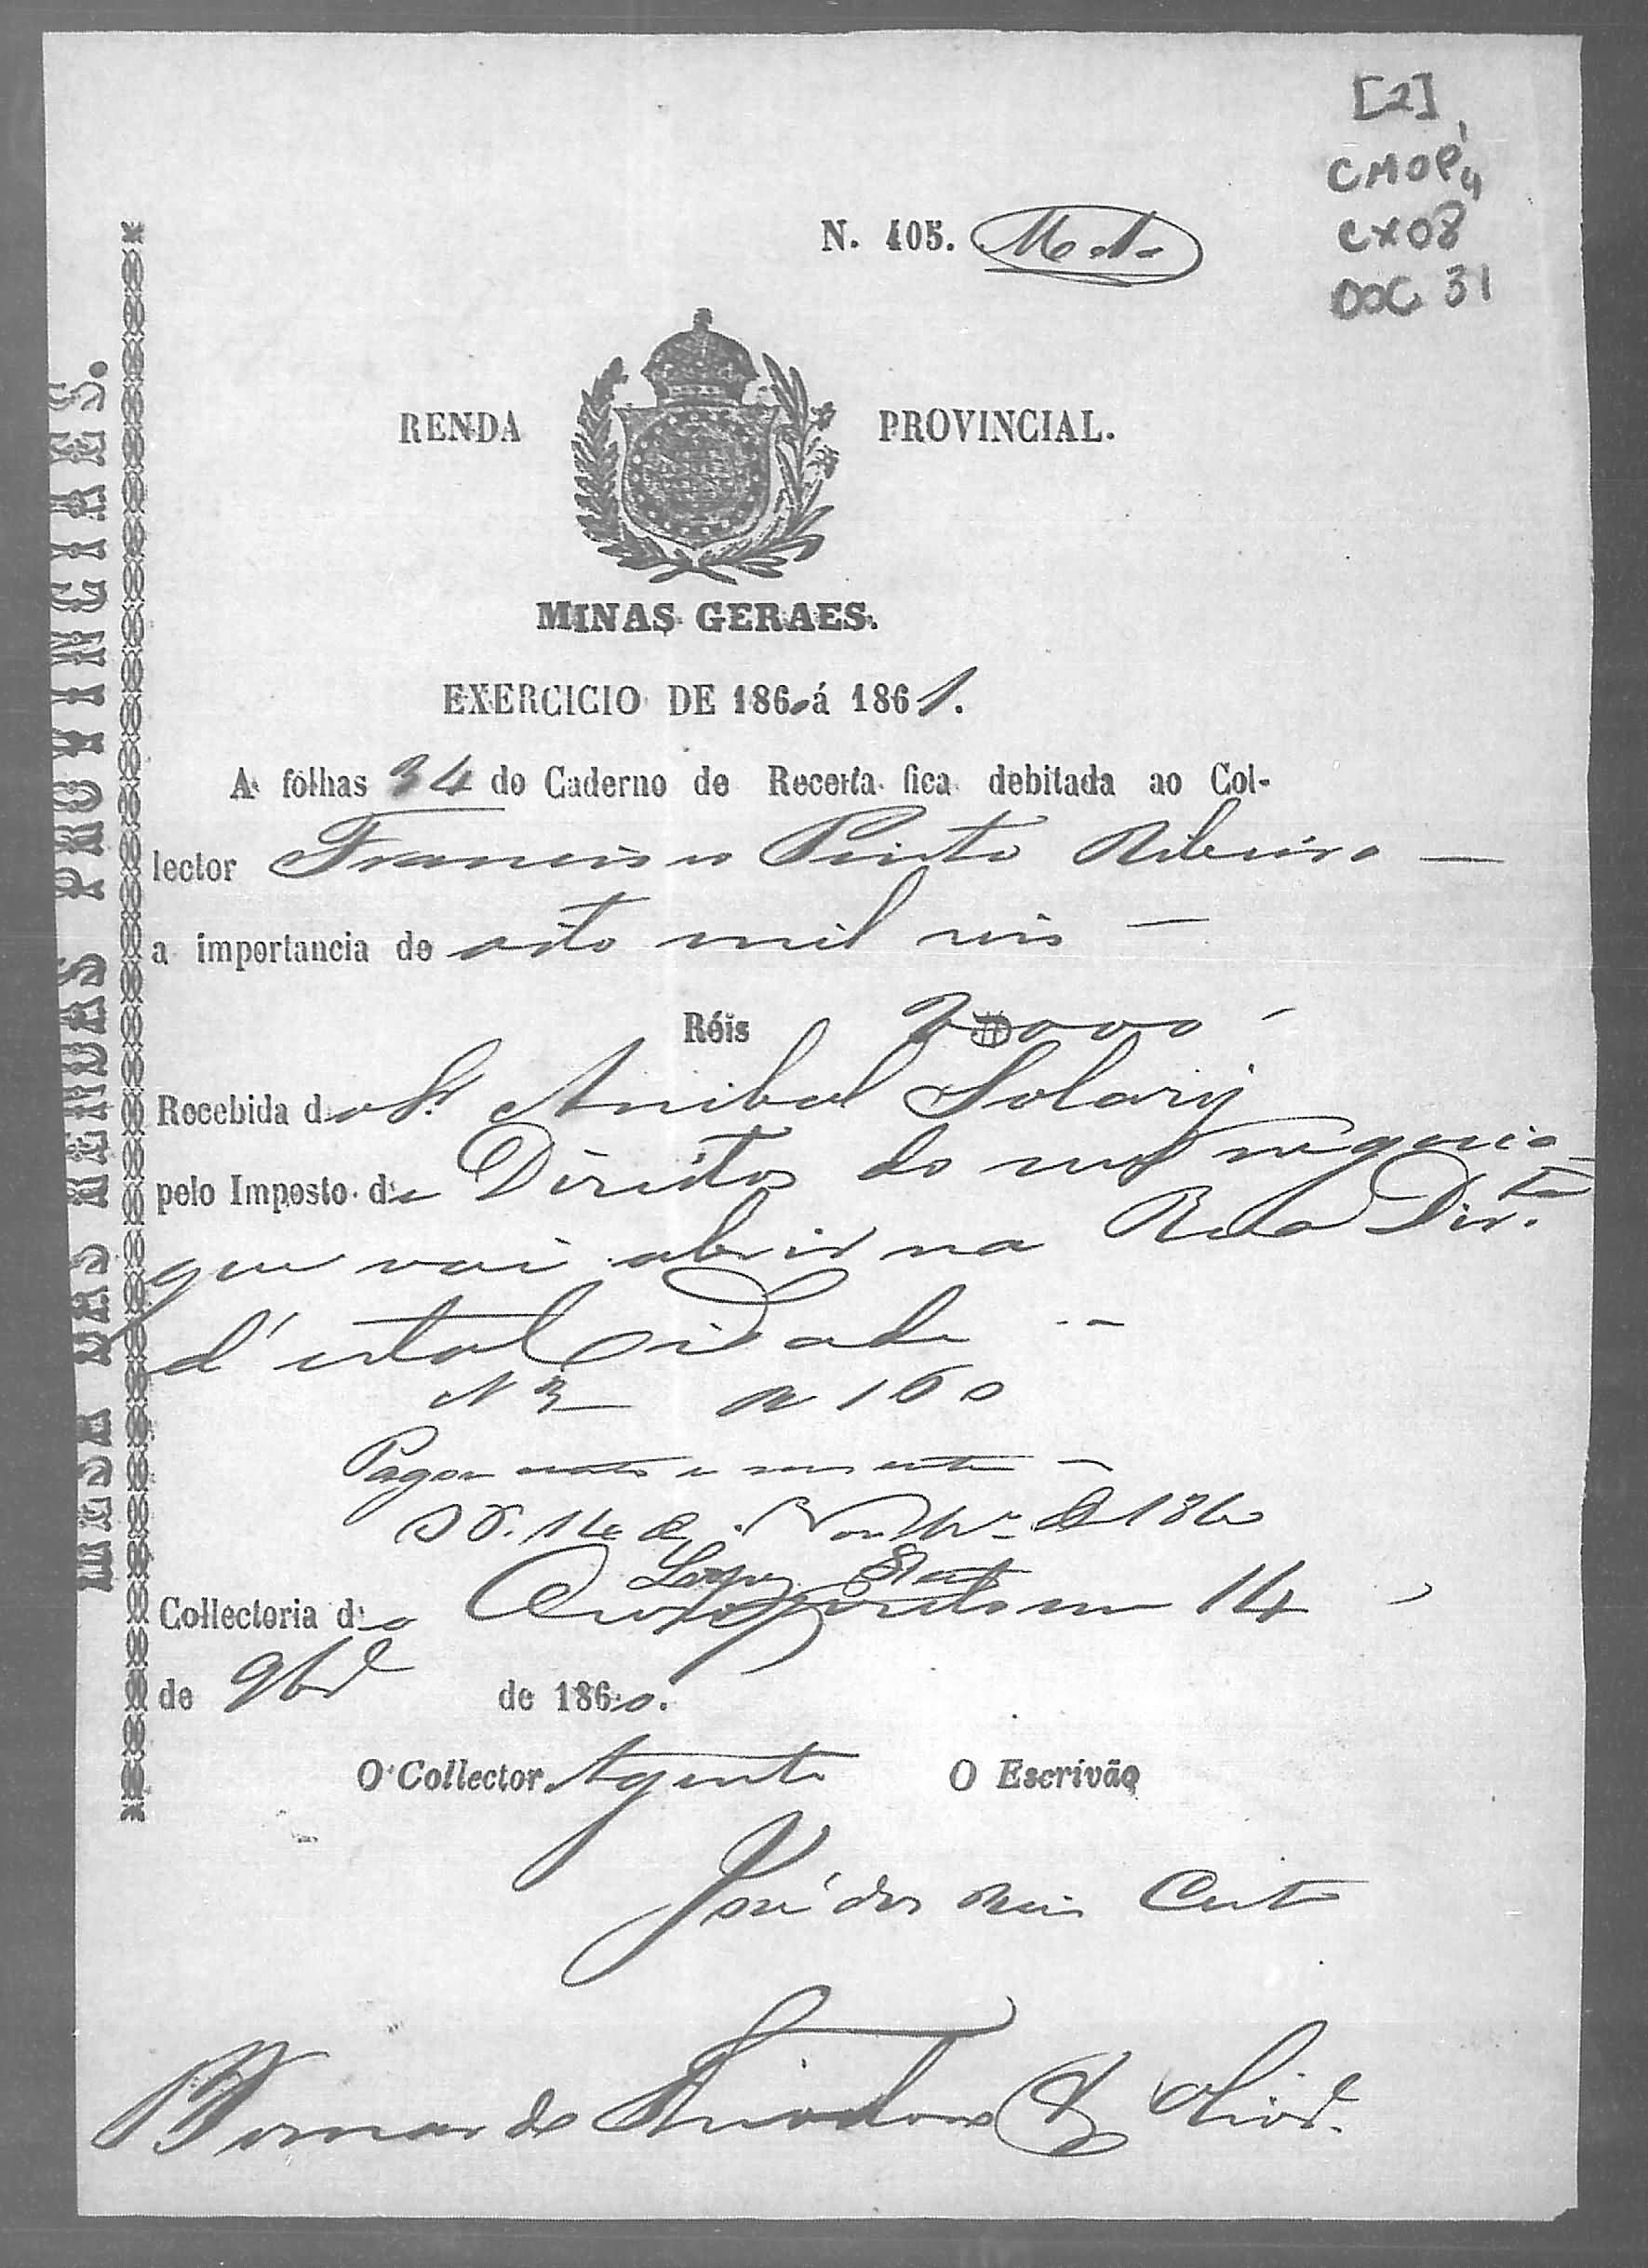 [2]
CMOP
CX08
DOC 31
N. 105.
RENDA PROVINCIAL.
MINAS GERAES.
EXERCICIO DE 1860 á 1861.
A folhas 34 do Caderno de Receita fica debitada ao Col-
lector Francisco Pinto Ribeiro
a importancia de oito mil reis
Réis
Recebida do Sr. Anibal Solary
pelo Imposto de Direitos do negocio
que vai abrir na Rua Dirta
d'esta Cidade
N 3 160
Pagou cento e sessenta
14 de Novbro de 1860
Collectoria do Ouro Preto em 14
de 9br de 1860.
O Collector Agente O Escrivão
José dos Reis
Bernardo Theodoro
MESA DAS RENDAS PROVINCIAES.